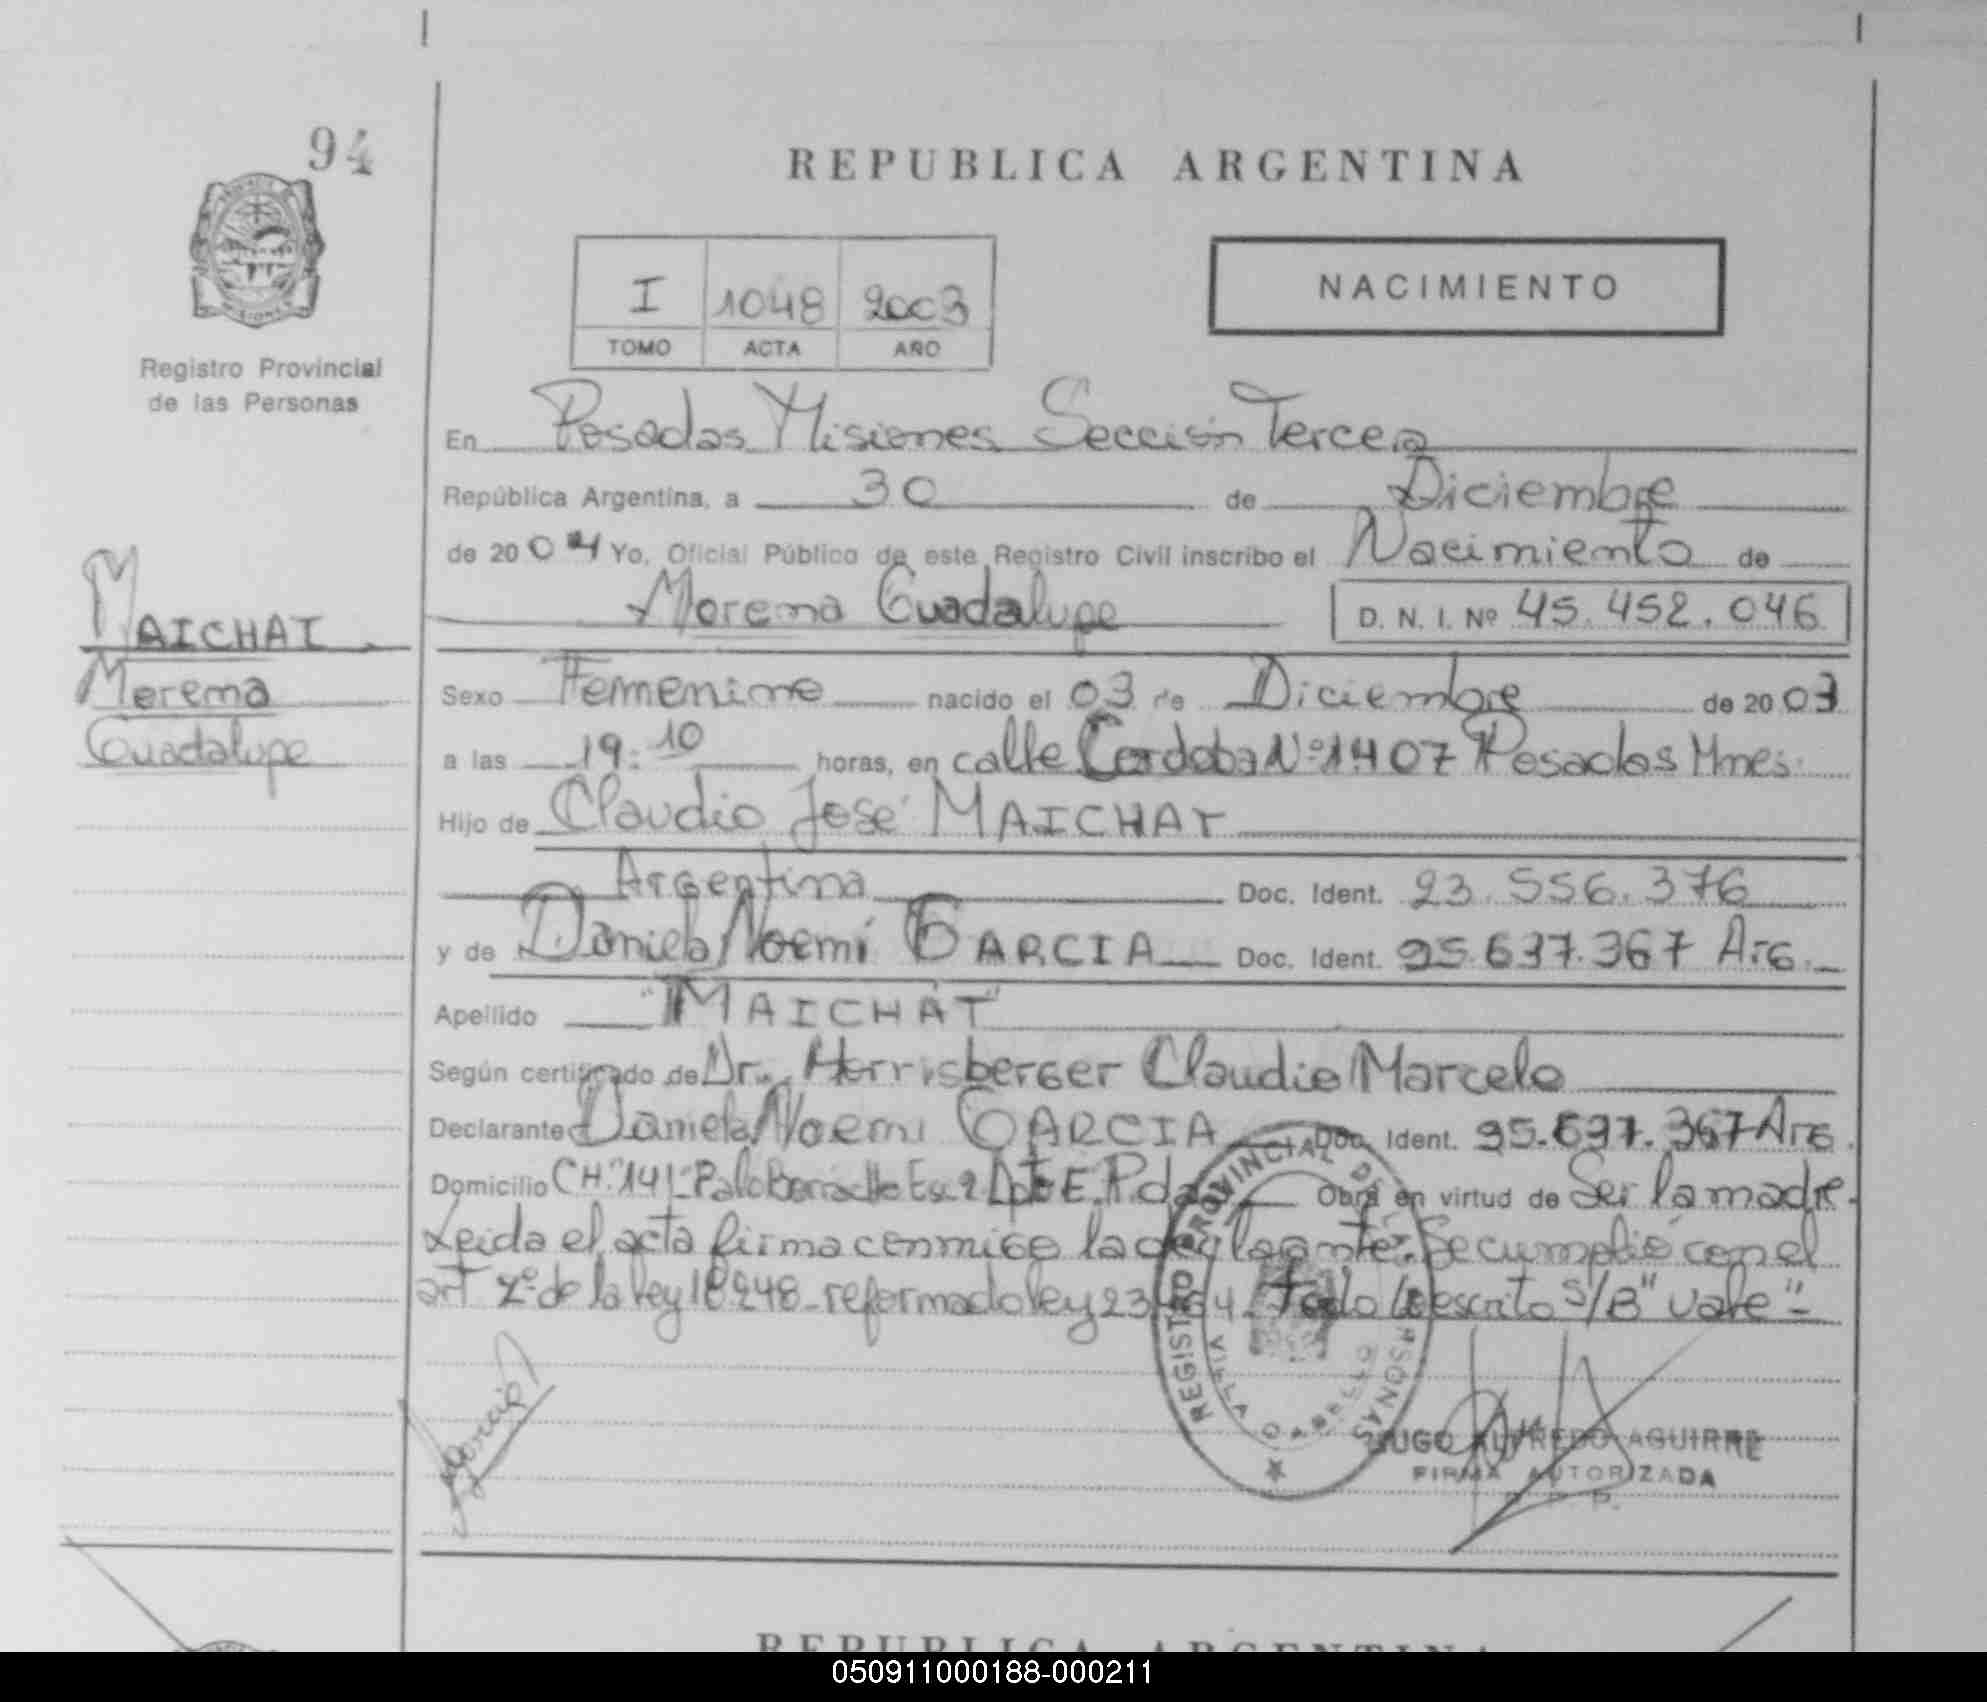 94
REPUBLICA ARGENTINA
I 1048 2003
TOMO ACTA AÑO
NACIMIENTO
Registro Provincial
de las Personas
En Posadas Misiones Sección Tercera
República Argentina, a 30 de Diciembre
de 2004 Yo, Oficial Público de este Registro Civil inscribo el Nacimiento de
Morema Guadalupe D. N. I. Nº 45.452.046
MAICHAT
Morema
Guadalupe
Sexo Femenino nacido el 03 de Diciembre de 2003
a las 19:10 horas, en calle Cordoba Nº 1407 Posadas Mnes.
Hijo de Claudio José MAICHAT
Argentina Doc. Ident. 23.556.376
y de Daniela Noemí GARCIA Doc. Ident. 25.637.367 Arg.
Apellido "MAICHAT"
Según certificado de Dr. Horrisberger Claudio Marcelo
Declarante Daniela Noemi GARCIA Doc. Ident. 25.637.367 Arg.
Domicilio CH. 141 Palo Borracho Esc 2 Dpto E. Pdas Obra en virtud de Ser la madre.
Leida el acta firma conmigo la declarante. Se cumplió con el
art 2º de la ley 18.248 - reformado ley 23.264. Todo lo escrito S/B "vale"-
REGISTRO PROVINCIAL DE LAS PERSONAS
VILLA CABELLO
Garcia
HUGO ALFREDO AGUIRRE
FIRMA AUTORIZADA
R. P. P.
REPUBLICA ARGENTINA
050911000188-000211